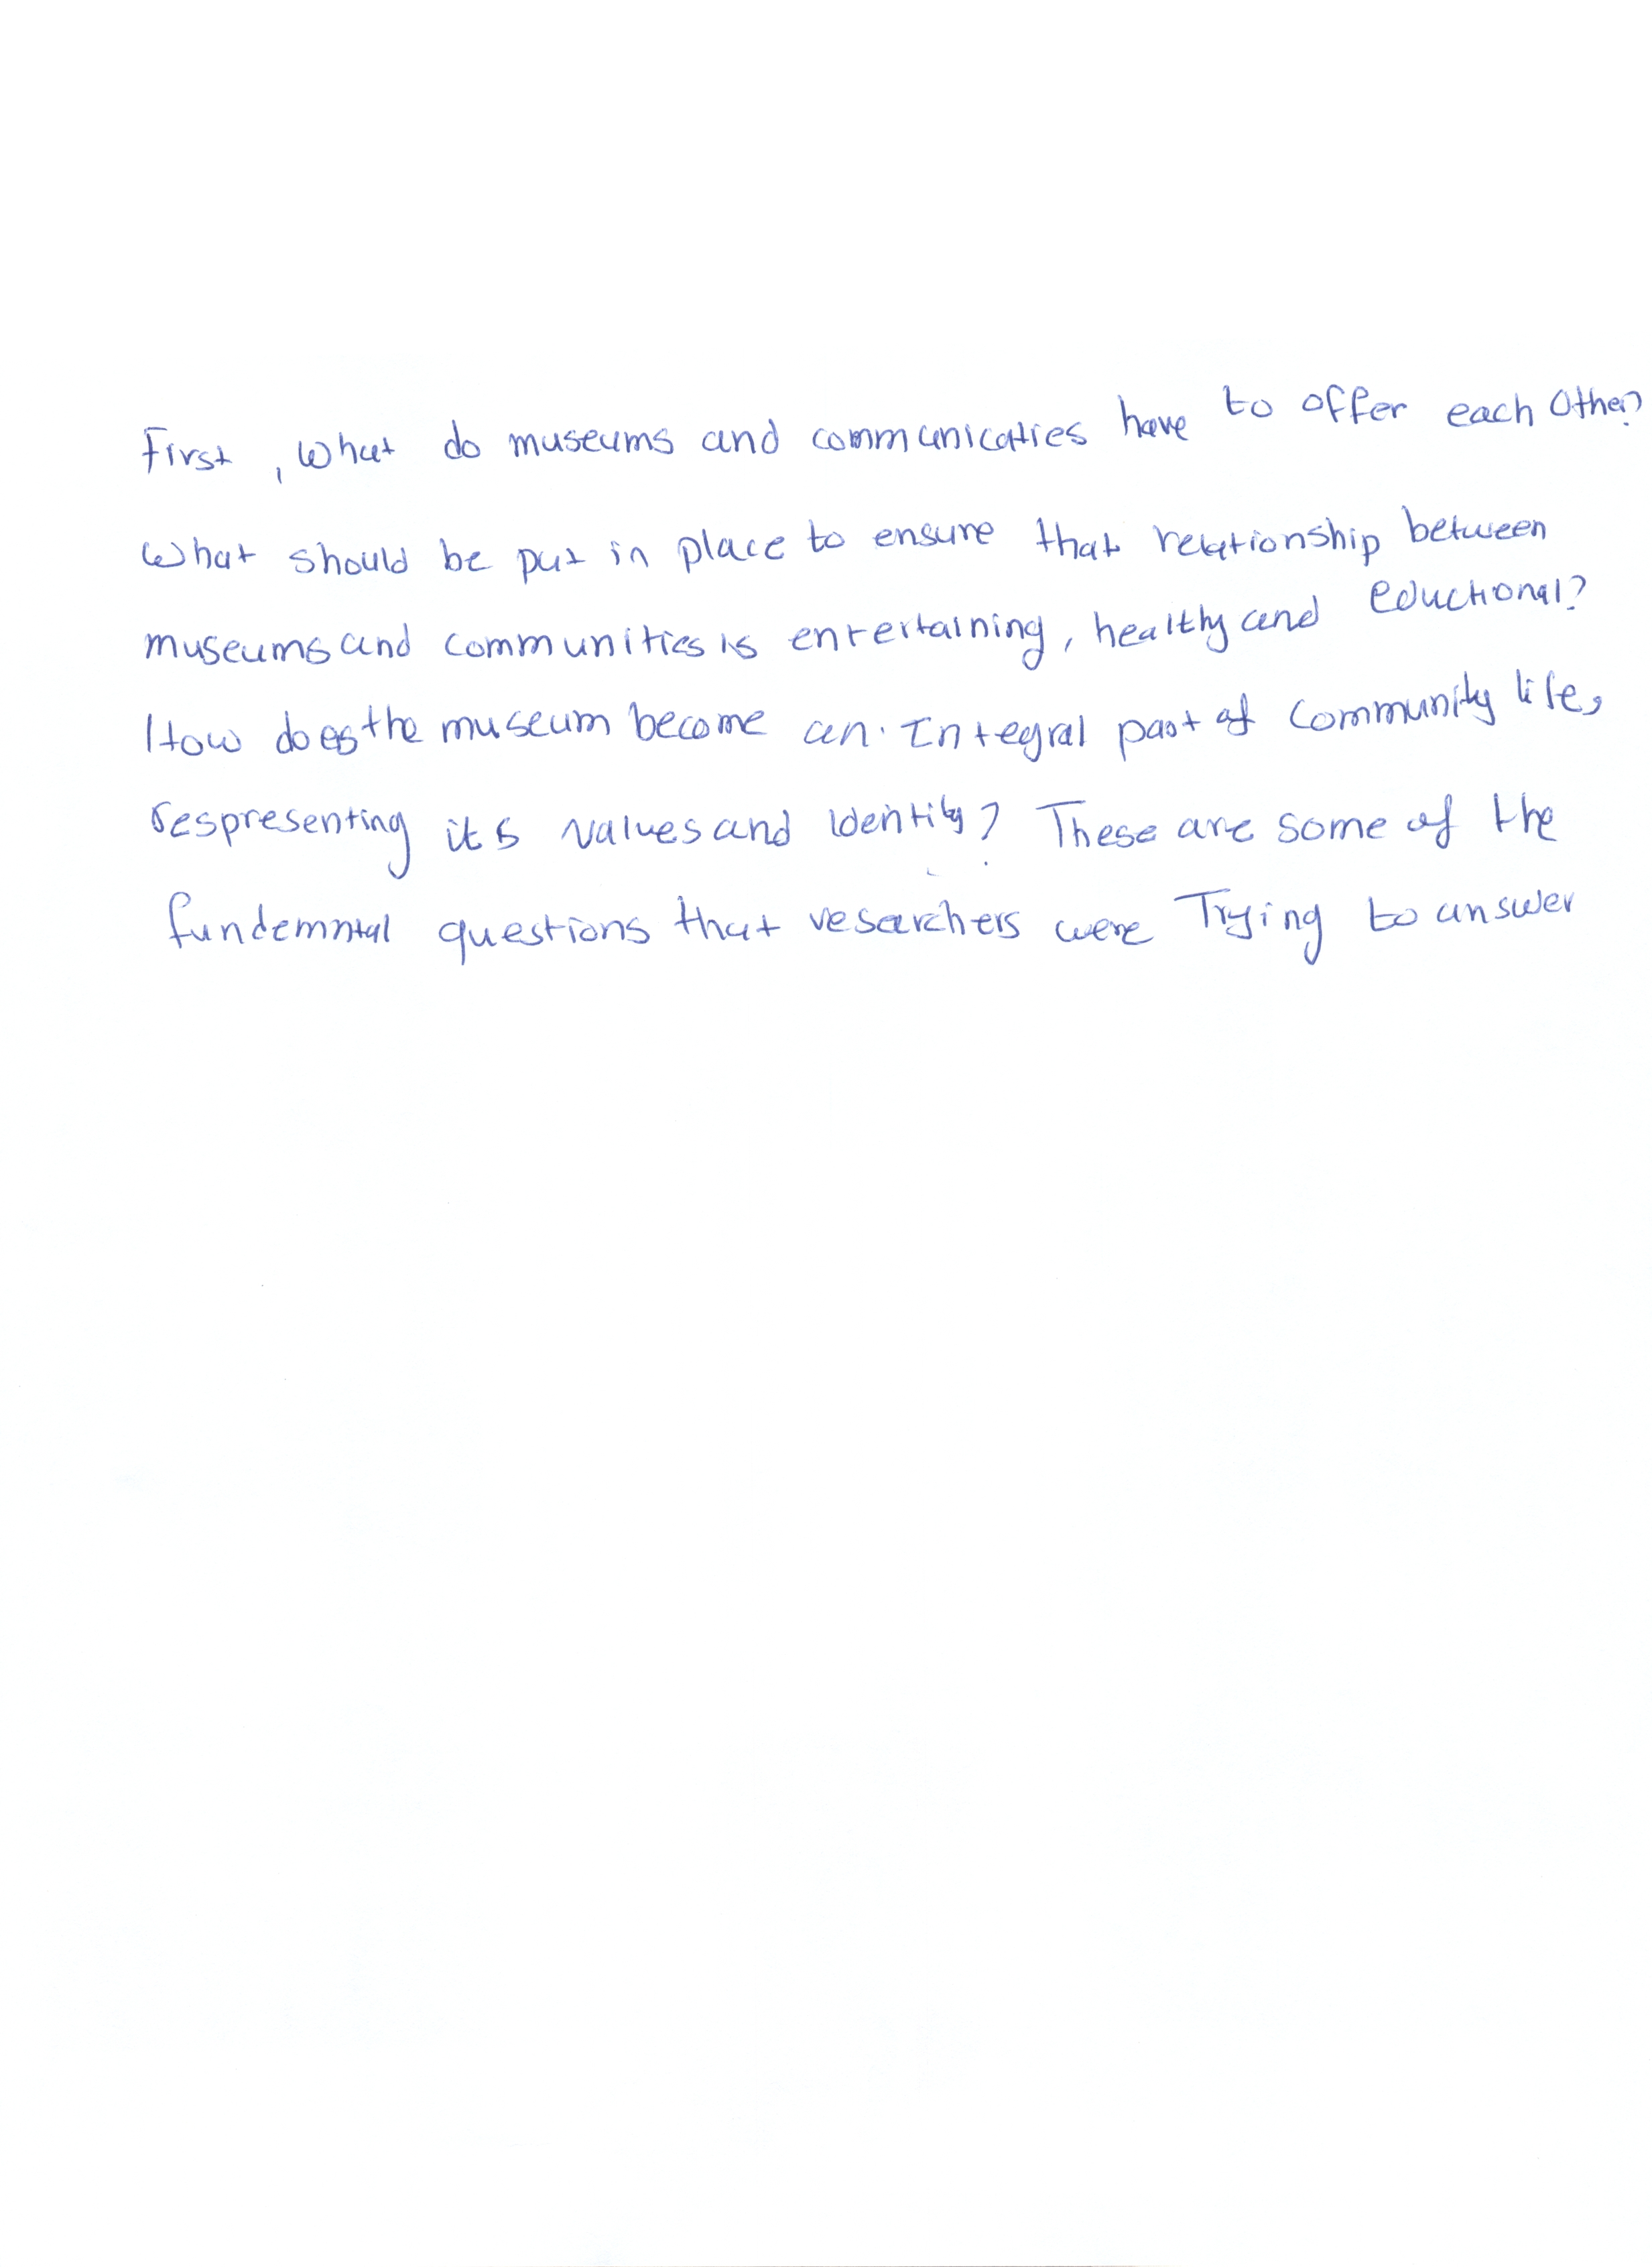 First, what do museums and communicaties have to offer each other?
What should be put in place to ensure that relationship between
museums and communities is entertaining, healthy and eductional?
How does the museum become an. Integral part of community life,
respresenting its values and identity? These are some of the
fundemntal questions that resarchers were Trying to answer